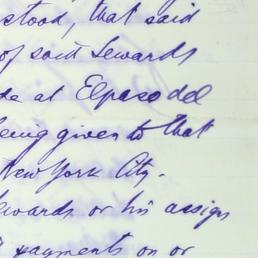 stood, that said
of said Sewards
at Elpaso del
being given to that
New York City.
ewards or his assigns
payments on or